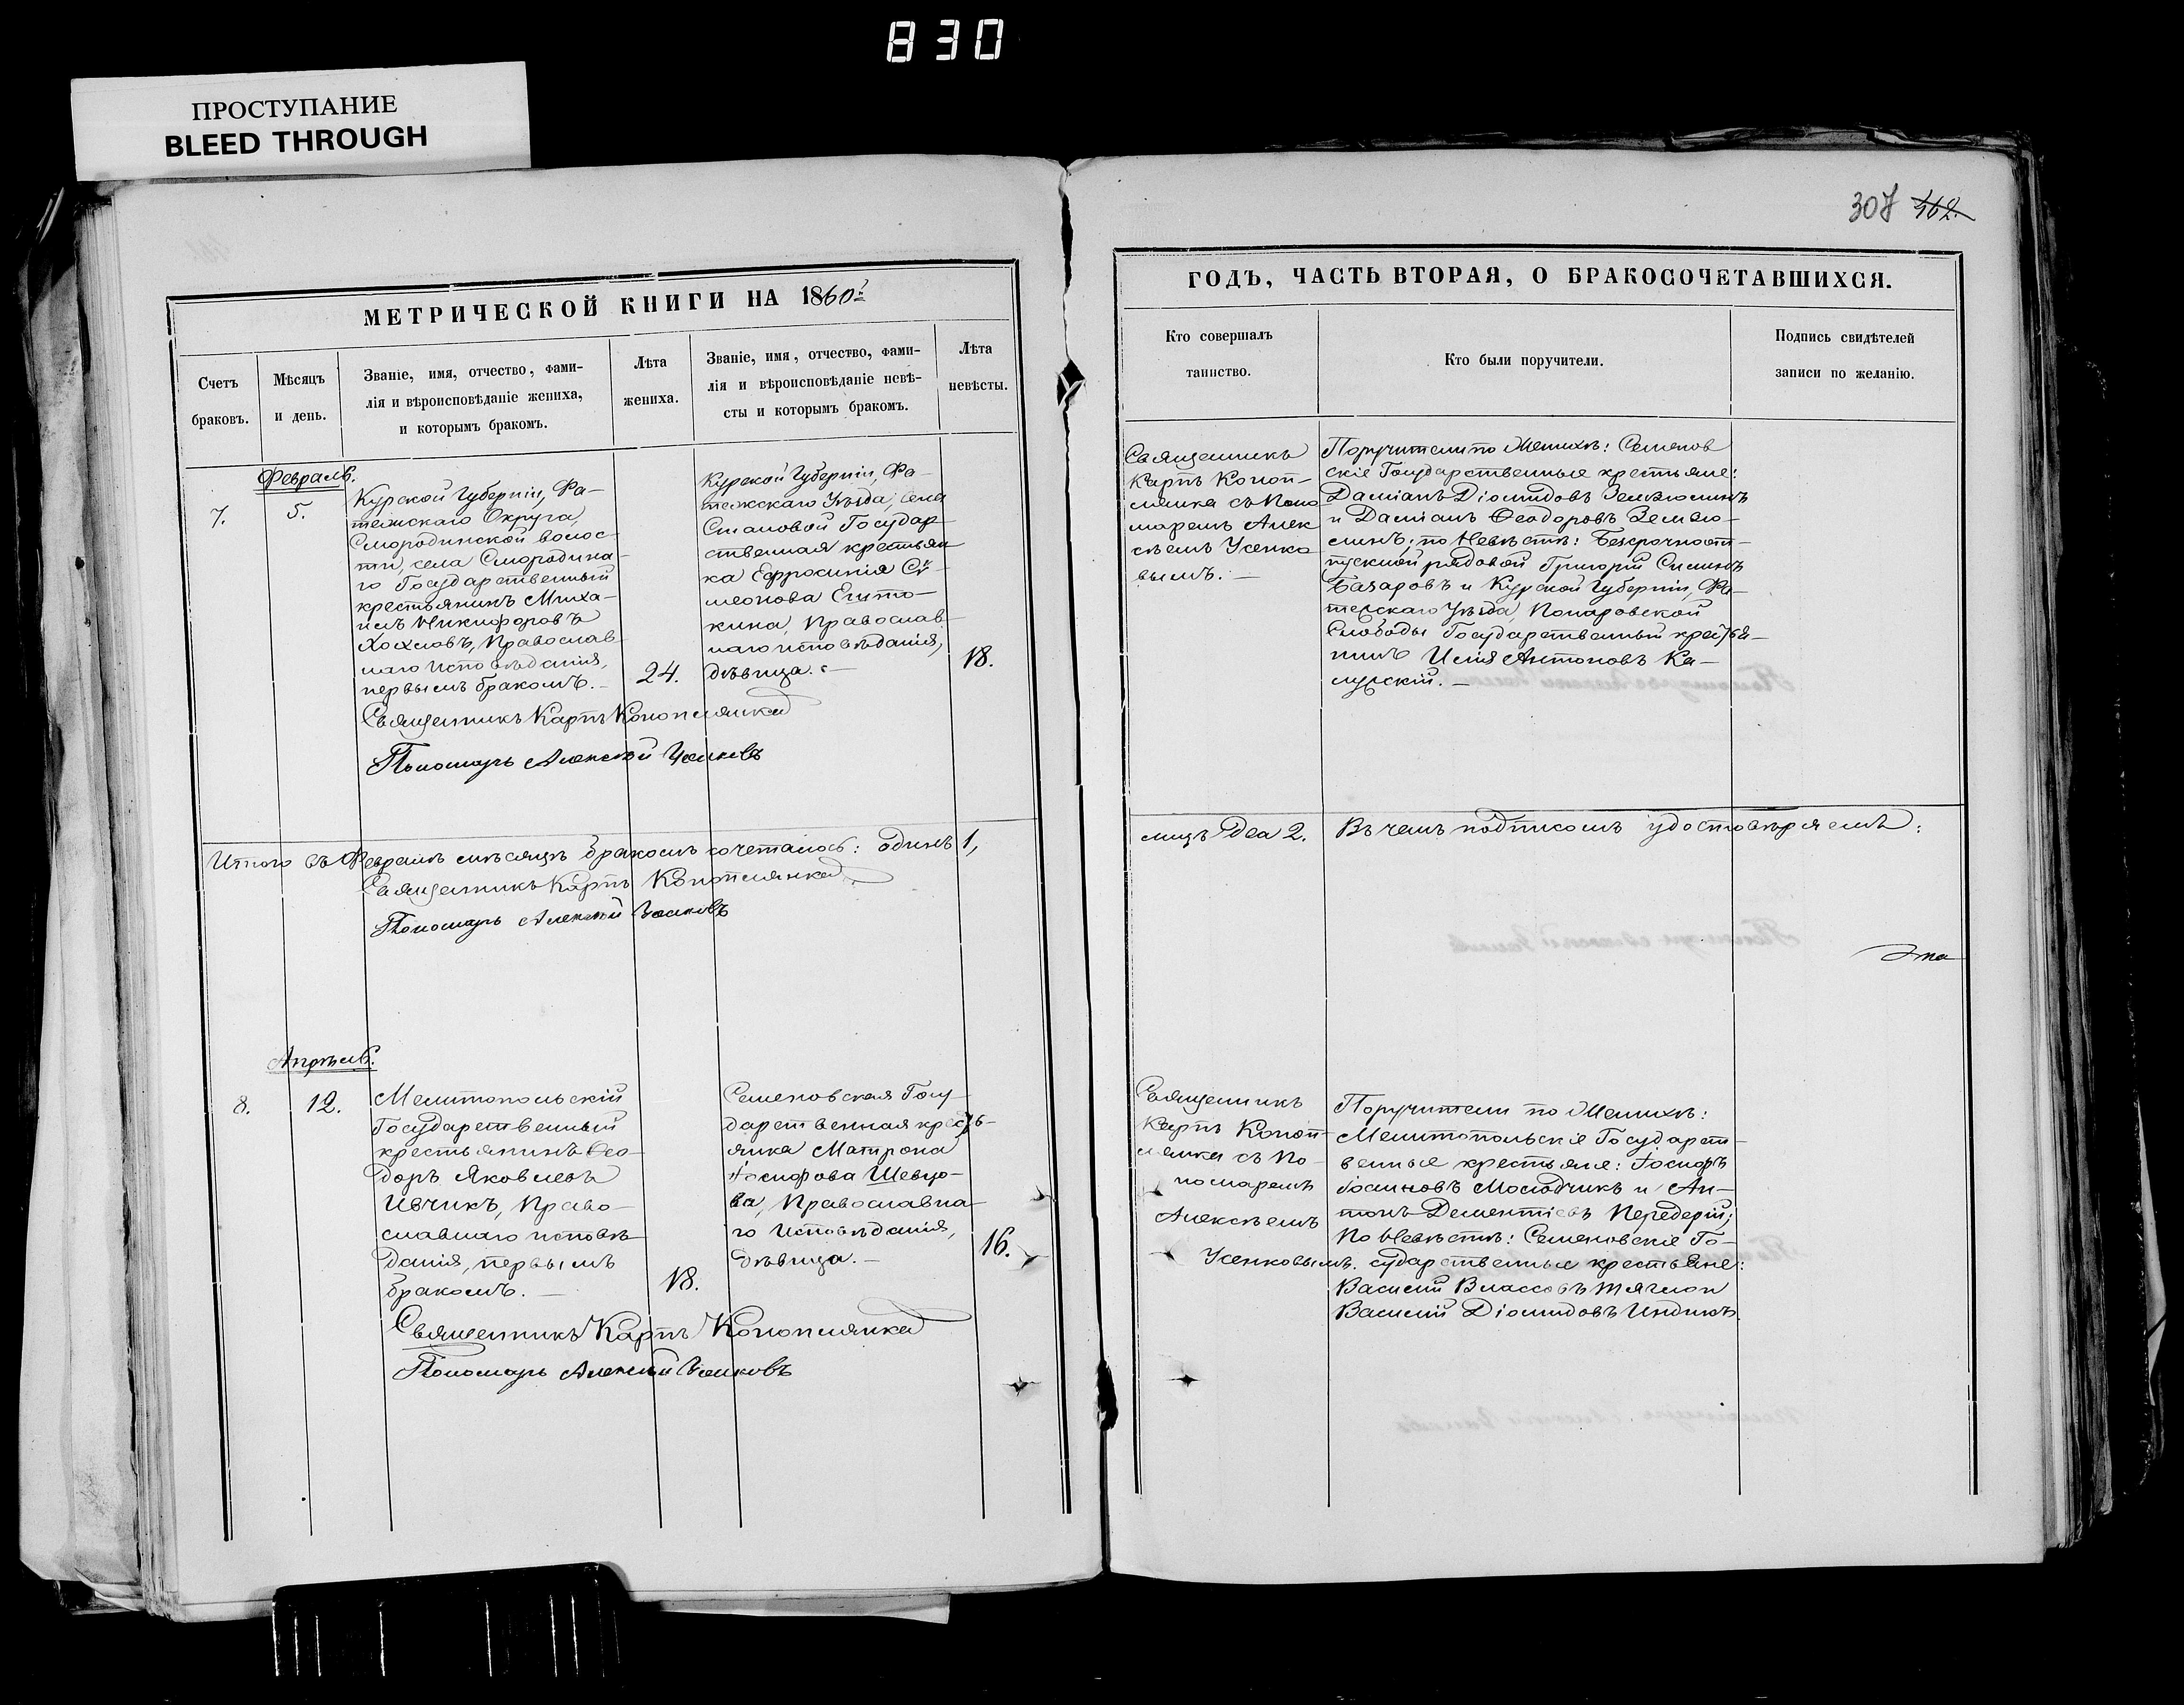 830
ПРОСТУПАНИЕ
BLEED THROUGH
307 162.
МЕТРИЧЕСКОЙ КНИГИ НА 1860й
Счетъ
браковъ.
Мѣсяцъ
и день.
Званіе, имя, отчество, фами-
лія и вѣроисповѣданіе жениха,
и которымъ бракомъ.
Лѣта
жениха.
Званіе, имя, отчество, фами-
лія и вѣроисповѣданіе невѣ-
сты и которымъ бракомъ.
Лѣта
невѣсты.
Февраль.
7.
5.
Курской Губерніи, Фа-
тежскаго Округа,
Смородинской волос-
ти, села Смородина-
го Государственный
крестьянинъ Миха-
илъ Никифоровъ
Хохловъ, Православ-
наго исповѣданія,
первымъ бракомъ.-
24.
Курской Губерніи, Фа-
тежскаго Уѣзда, села
Становой Государ-
ственная крестьян
ка Ефросинія Сѵ-
меонова
Православ-
наго исповѣданія,
дѣвица.-
18.
Священникъ Карпъ Коноплянка
Пономарь Алексѣй Усенковъ
Итого въ Февралѣ мѣсяцѣ бракомъ сочеталось: одинъ 1,
Священникъ Карпъ Коноплянка
Пономарь Алексѣй Усенковъ
Апрѣль.
8.
12.
Мелитопольскій
Государственный
крестьянинъ Ѳео-
доръ Яковлевъ
Ивчикъ, Право-
славнаго исповѣ-
данія, первымъ
бракомъ.-
18.
Семеновская Госу-
дарственная кресть-
янка Матрона
Іосифова Шевцо-
ва, Православна-
го Исповѣданія,
дѣвица.-
16.
Священникъ Карпъ Коноплянка
Пономарь Алексѣй Усенковъ
ГОДЪ, ЧАСТЬ ВТОРАЯ, О БРАКОСОЧЕТАВШИХСЯ.
Кто совершалъ
таинство.
Кто были поручители.
Подпись свидѣтелей
записи по желанію.
Священникъ
Карпъ Коноп-
лянка съ Поно
маремъ Алек
сѣемъ Усенко
вымъ.-
Поручители по Женихѣ: Семенов
скіе Государственные крестьяне:
Даміанъ Діомидовъ
и Даміанъ Ѳеодоровъ
по Невѣстѣ: Безсрочноот-
пускной рядовой Григорій
Базаровъ и Курской Губерніи, Фа-
тежскаго Уѣзда, Понаровской
Слободы Государственный крестья-
нинъ Илія Антоновъ Ка-
лужскій.-
лицъ два 2. Въ чемъ подписомъ удостовѣряемъ:
Эта
Священникъ
Карпъ Коноп-
лянка съ По-
номаремъ
Алексѣемъ
Усенковымъ.
Поручители по Женихѣ:
Мелитопольскіе Государст-
венные крестьяне: Іосифъ
Молодчикъ и Ан-
тонъ Дементіевъ Передерій;
по Невѣстѣ: Семеновскіе Го-
сударственные крестьяне:
Василій Власовъ
Василій Діомидовъ Индикъ.